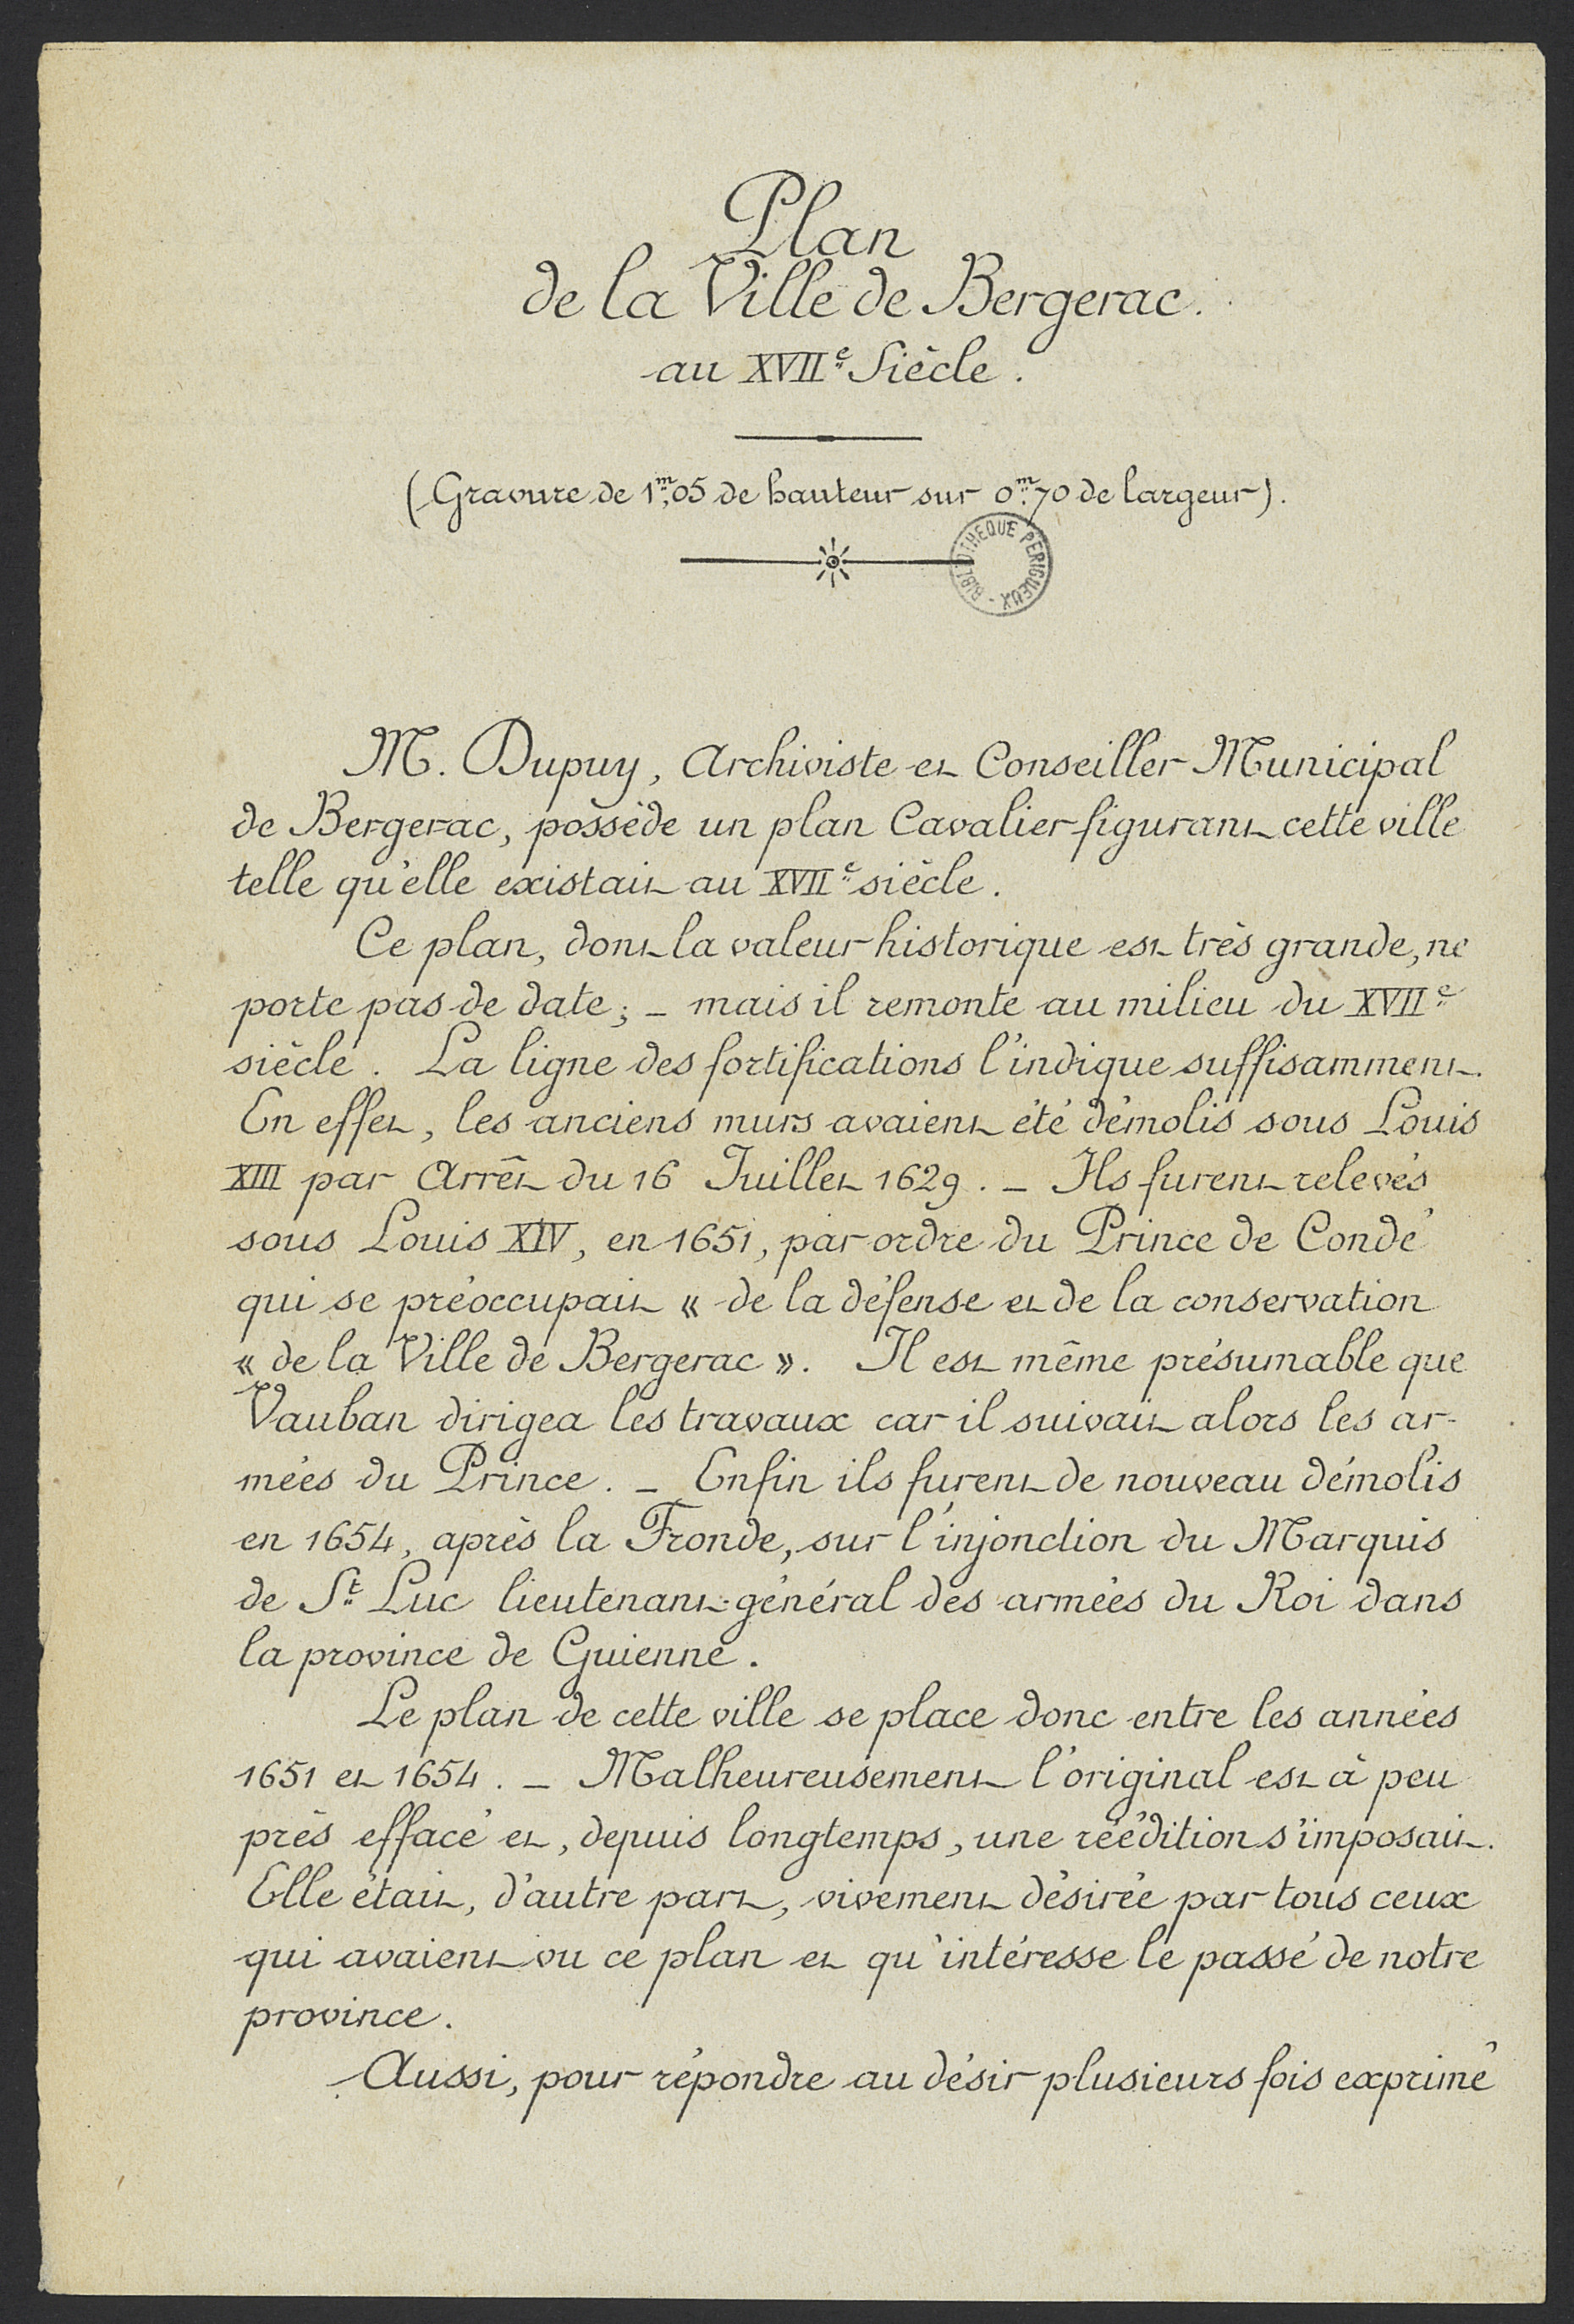 Plan
de la Ville de Bergerac.
au XVIIe Siècle.
(Gravure de 1m,05 de hauteur sur 0m,70 de largeur).
BIBLIOTHEQUE PERIGUEUX -
M. Dupuy, Archiviste et Conseiller Municipal
de Bergerac, possède un plan Cavalier figurant cette ville
telle qu'elle existait au XVIIe siècle.
Ce plan, dont la valeur historique est très grande, ne
porte pas de date; _ mais il remonte au milieu du XVIIe
siècle. La ligne des fortifications l'indique suffisamment.
En effet, les anciens murs avaient été démolis sous Louis
XIII par Arrêt du 16 Juillet 1629. _ Ils furent relevés
sous Louis XIV, en 1651, par ordre du Prince de Condé
qui se préoccupait « de la défense et de la conservation
« de la Ville de Bergerac ». Il est même présumable que
Vauban dirigea les travaux car il suivait alors les ar-
mées du Prince. _ Enfin ils furent de nouveau démolis
en 1654, après la Fronde, sur l'injonction du Marquis
de St Luc lieutenant-général des armées du Roi dans
la province de Guienne.
Le plan de cette ville se place donc entre les années
1651 et 1654. _ Malheureusement l'original est à peu
près effacé et, depuis longtemps, une réédition s'imposait.
Elle était, d'autre part, vivement désirée par tous ceux
qui avaient vu ce plan et qu'intéresse le passé de notre
province.
Aussi, pour répondre au désir plusieurs fois exprimé